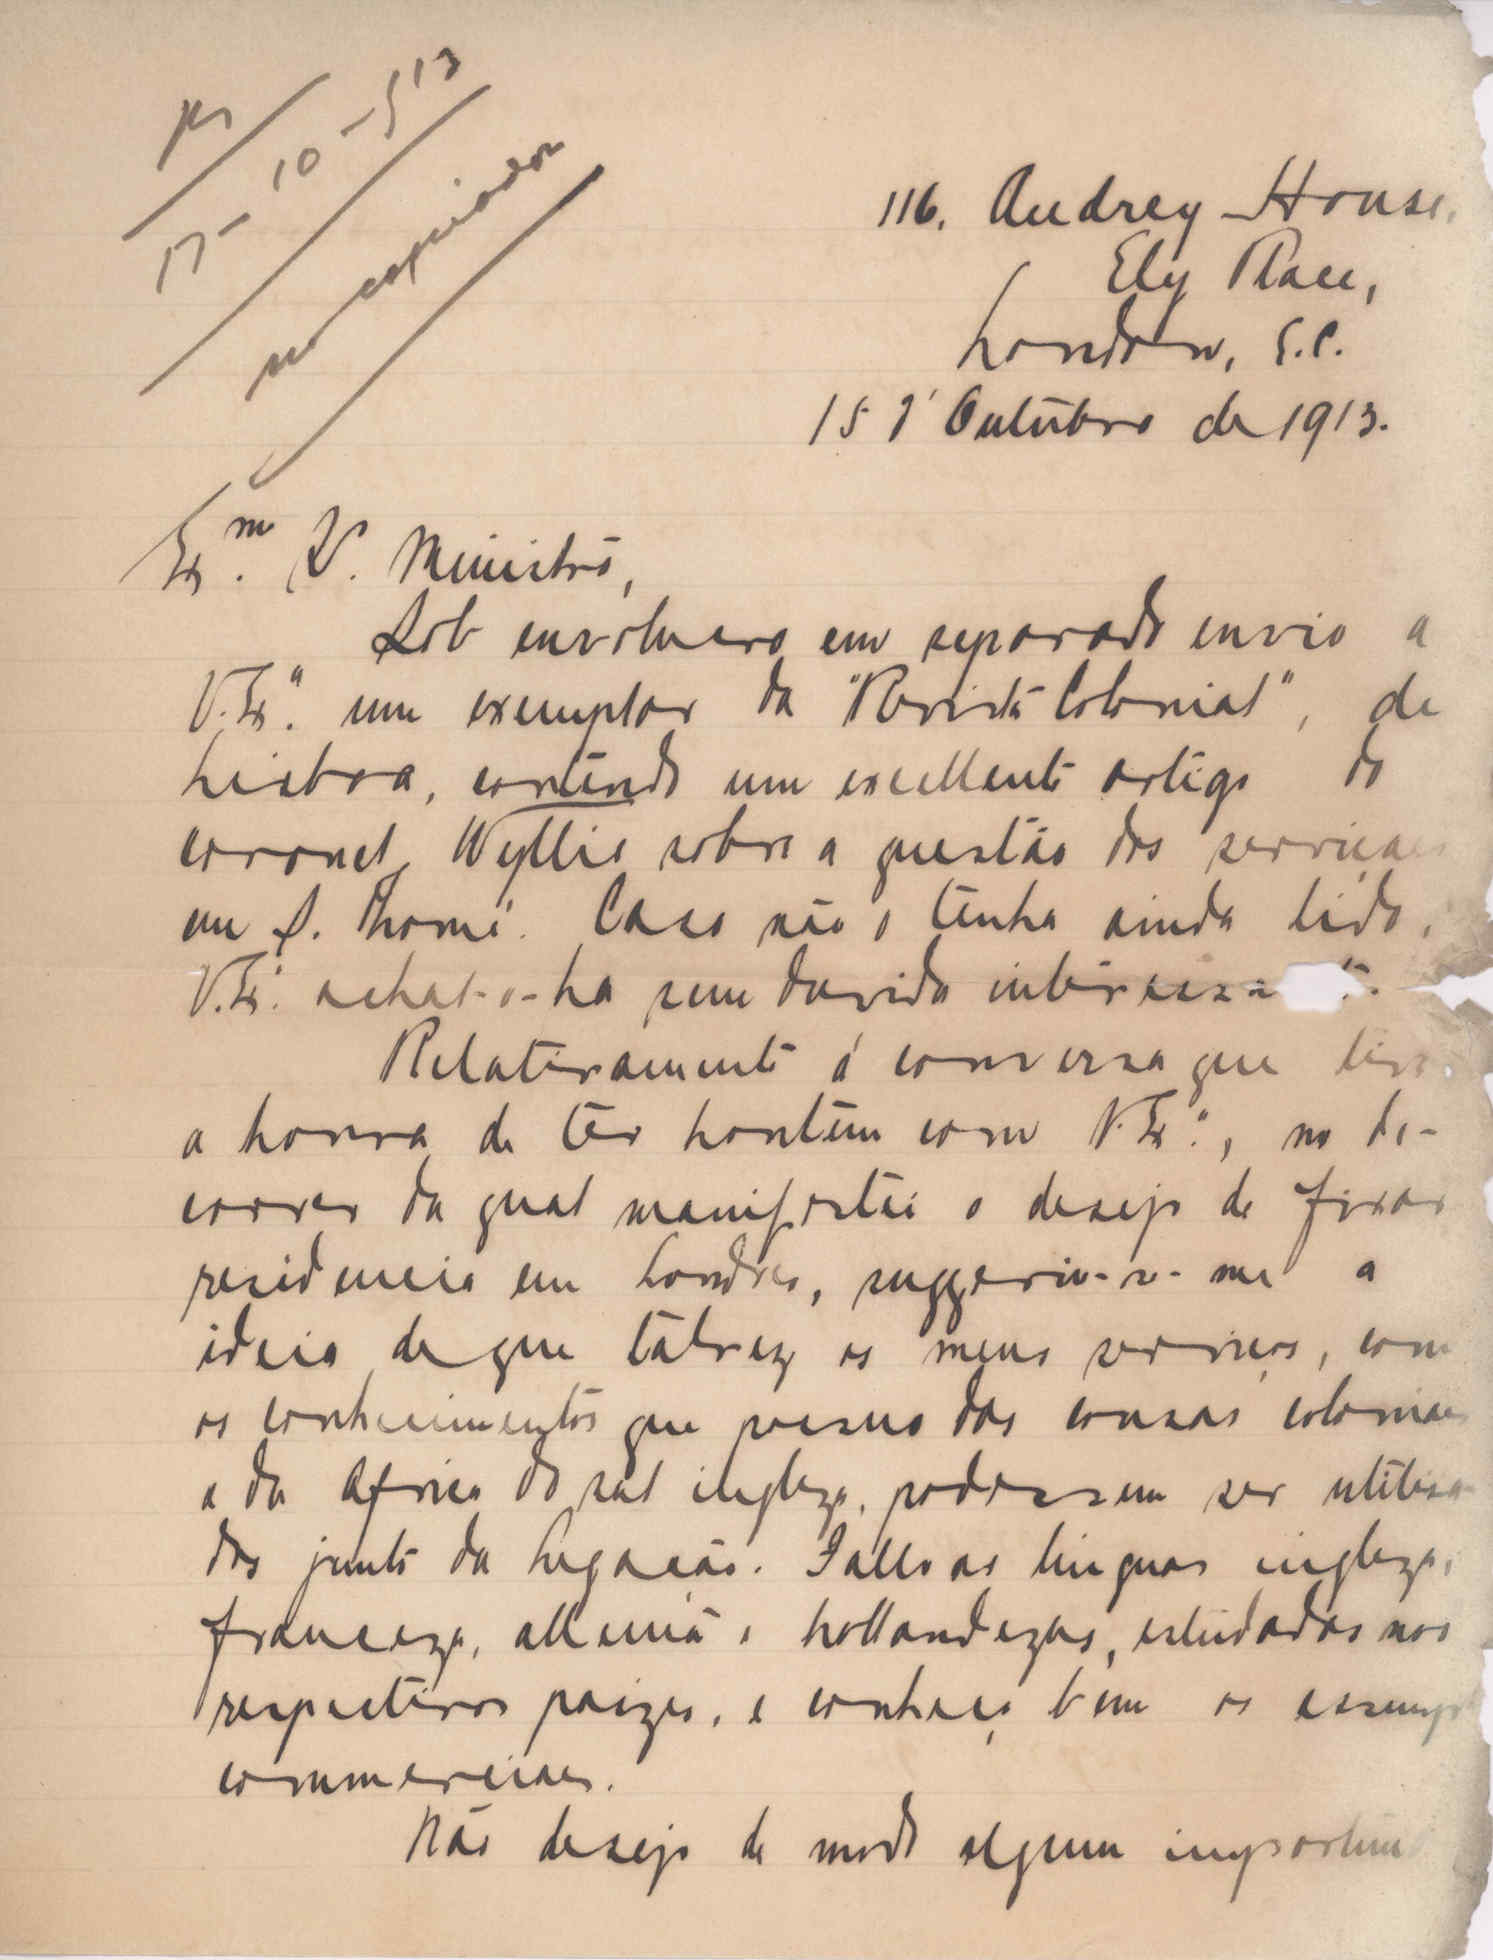 17-10-913
no copiador
116. Audrey House,
Ely Place,
London, E.C.
15 d'Outubro de 1913.
Exm. Sr. Ministro,
Sob envolucro em separado envio a
V. Exª. um exemplar da "Revista Colonial", de
Lisboa, contendo um excellente artigo do
coronel Wyllie sobre a questão dos serviçaes
em S. Thomé. Caso não o tenha ainda lido,
V. Exª. achal-o-ha sem duvida
Relativamente á conversa que tive
a honra de ter hontem com V. Exª., no de-
correr da qual manifestei o desejo de fixar
residencia em Londres, suggeriu-se-me a
ideia de que talvez os meus serviços, com
os conhecimentos que possuo das cousas coloniaes
e da Africa do sul ingleza, podessem ser utilisa-
dos junto da Legação. Fallo as linguas ingleza,
franceza, allemã e hollandezas, estudadas nos
respectivos paizes, e conheço bem os
commerciaes.
Não desejo de modo algum